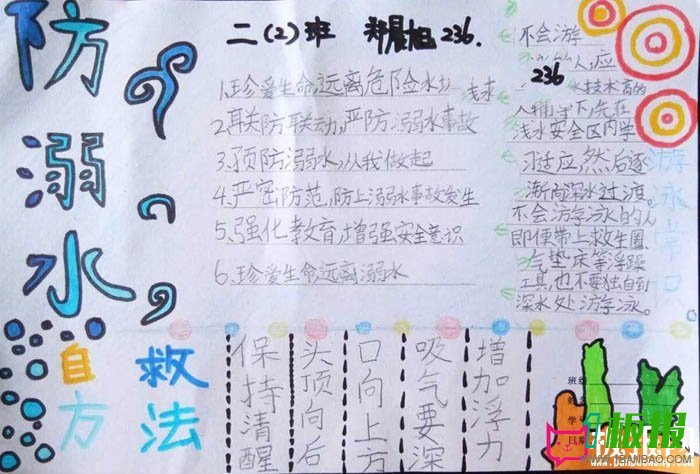 防溺水
二(2)班 郑晨旭 236.
1、珍爱生命,远离危险水域
浅水
2、联防联动,严防溺水事故
3、预防溺水,从我做起
4、严密防范,防止溺水事故发生
5、强化教育增强安全意识
6、珍爱生命远离溺水
不会游
人,应
236
技术高的
人辅导下,先在
浅水安全区内学
习适应,然后逐
渐向深水过渡。
不会游学泳的人
即便带上救生圈
气垫床等浮躁
工具,也不要独自到
深水处游学泳。
游泳常识
自救
方法
保持清醒
头顶向后
口向上方
吸气要深
增加浮力
班级
姓名
学号
日期
板报
WWW.1BANBAO.COM